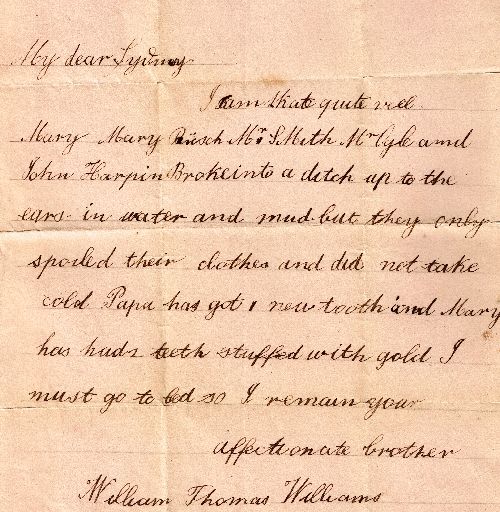 My dear Sydney
I am that quite well
Mary Mary Büsch Mrs Smith Mr Cyle amd
John Harpin Broke into a ditch up to the
ears in water and mud but they only
spoiled their clothes and did not take
cold Papa has got 1 new tooth and Mary
has had 2 teeth stuffed with gold I
must go to bed so I remain your
affectionate brother
William Thomas Williams